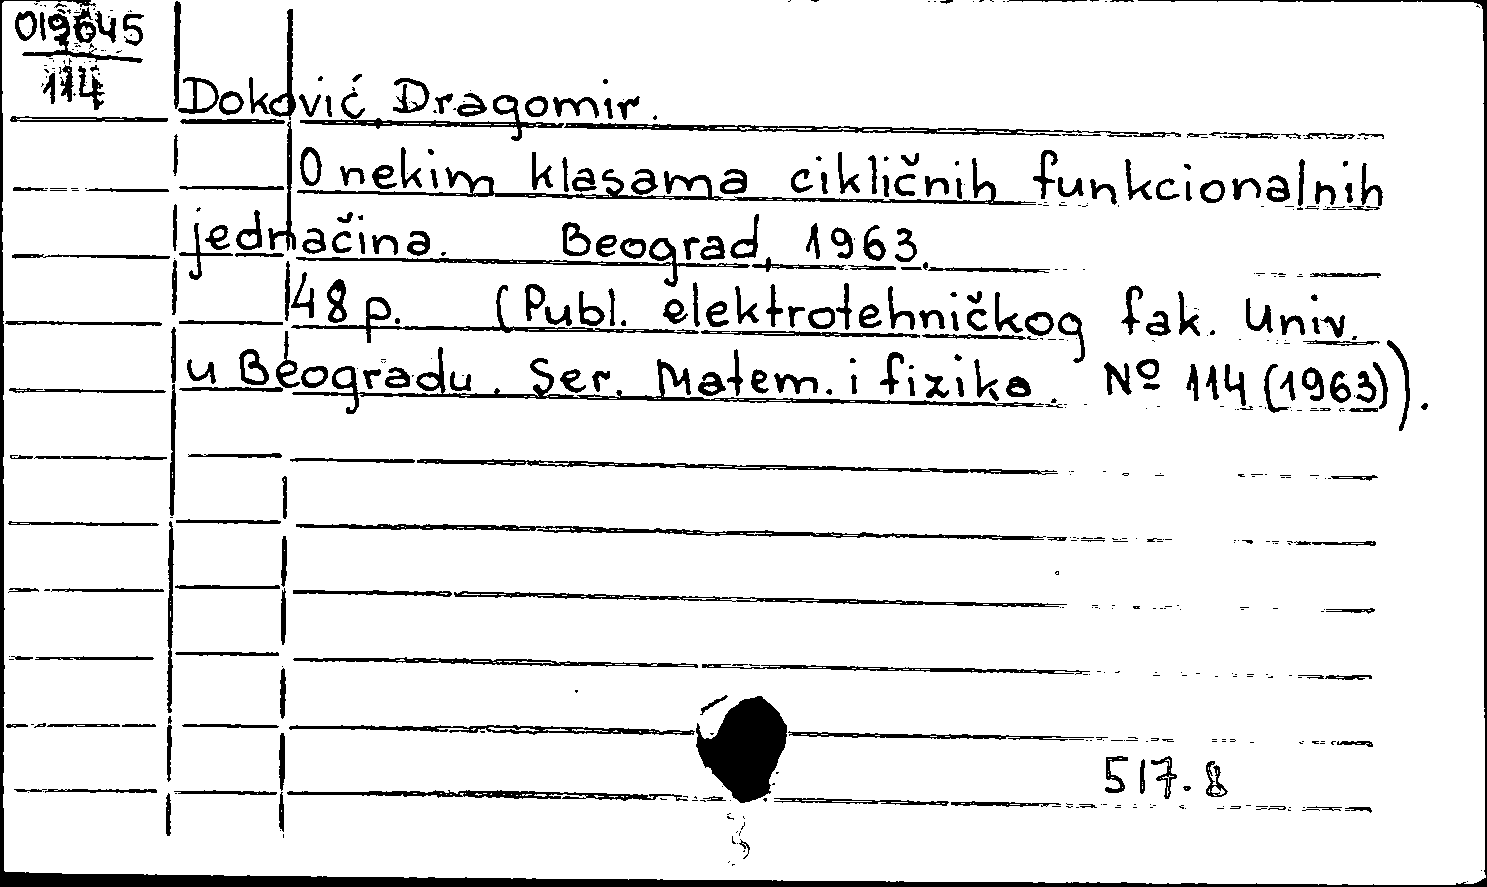 019645
114
Doković, Dragomir.
O nekim klasama cikličnih funkcionalnih
jednačina. Beograd, 1963.
48 p. (Publ. elektrotehničkog fak. Univ.
u Beogradu. Ser. Matem. i fizika. Nº 114 (1963)).
517.8